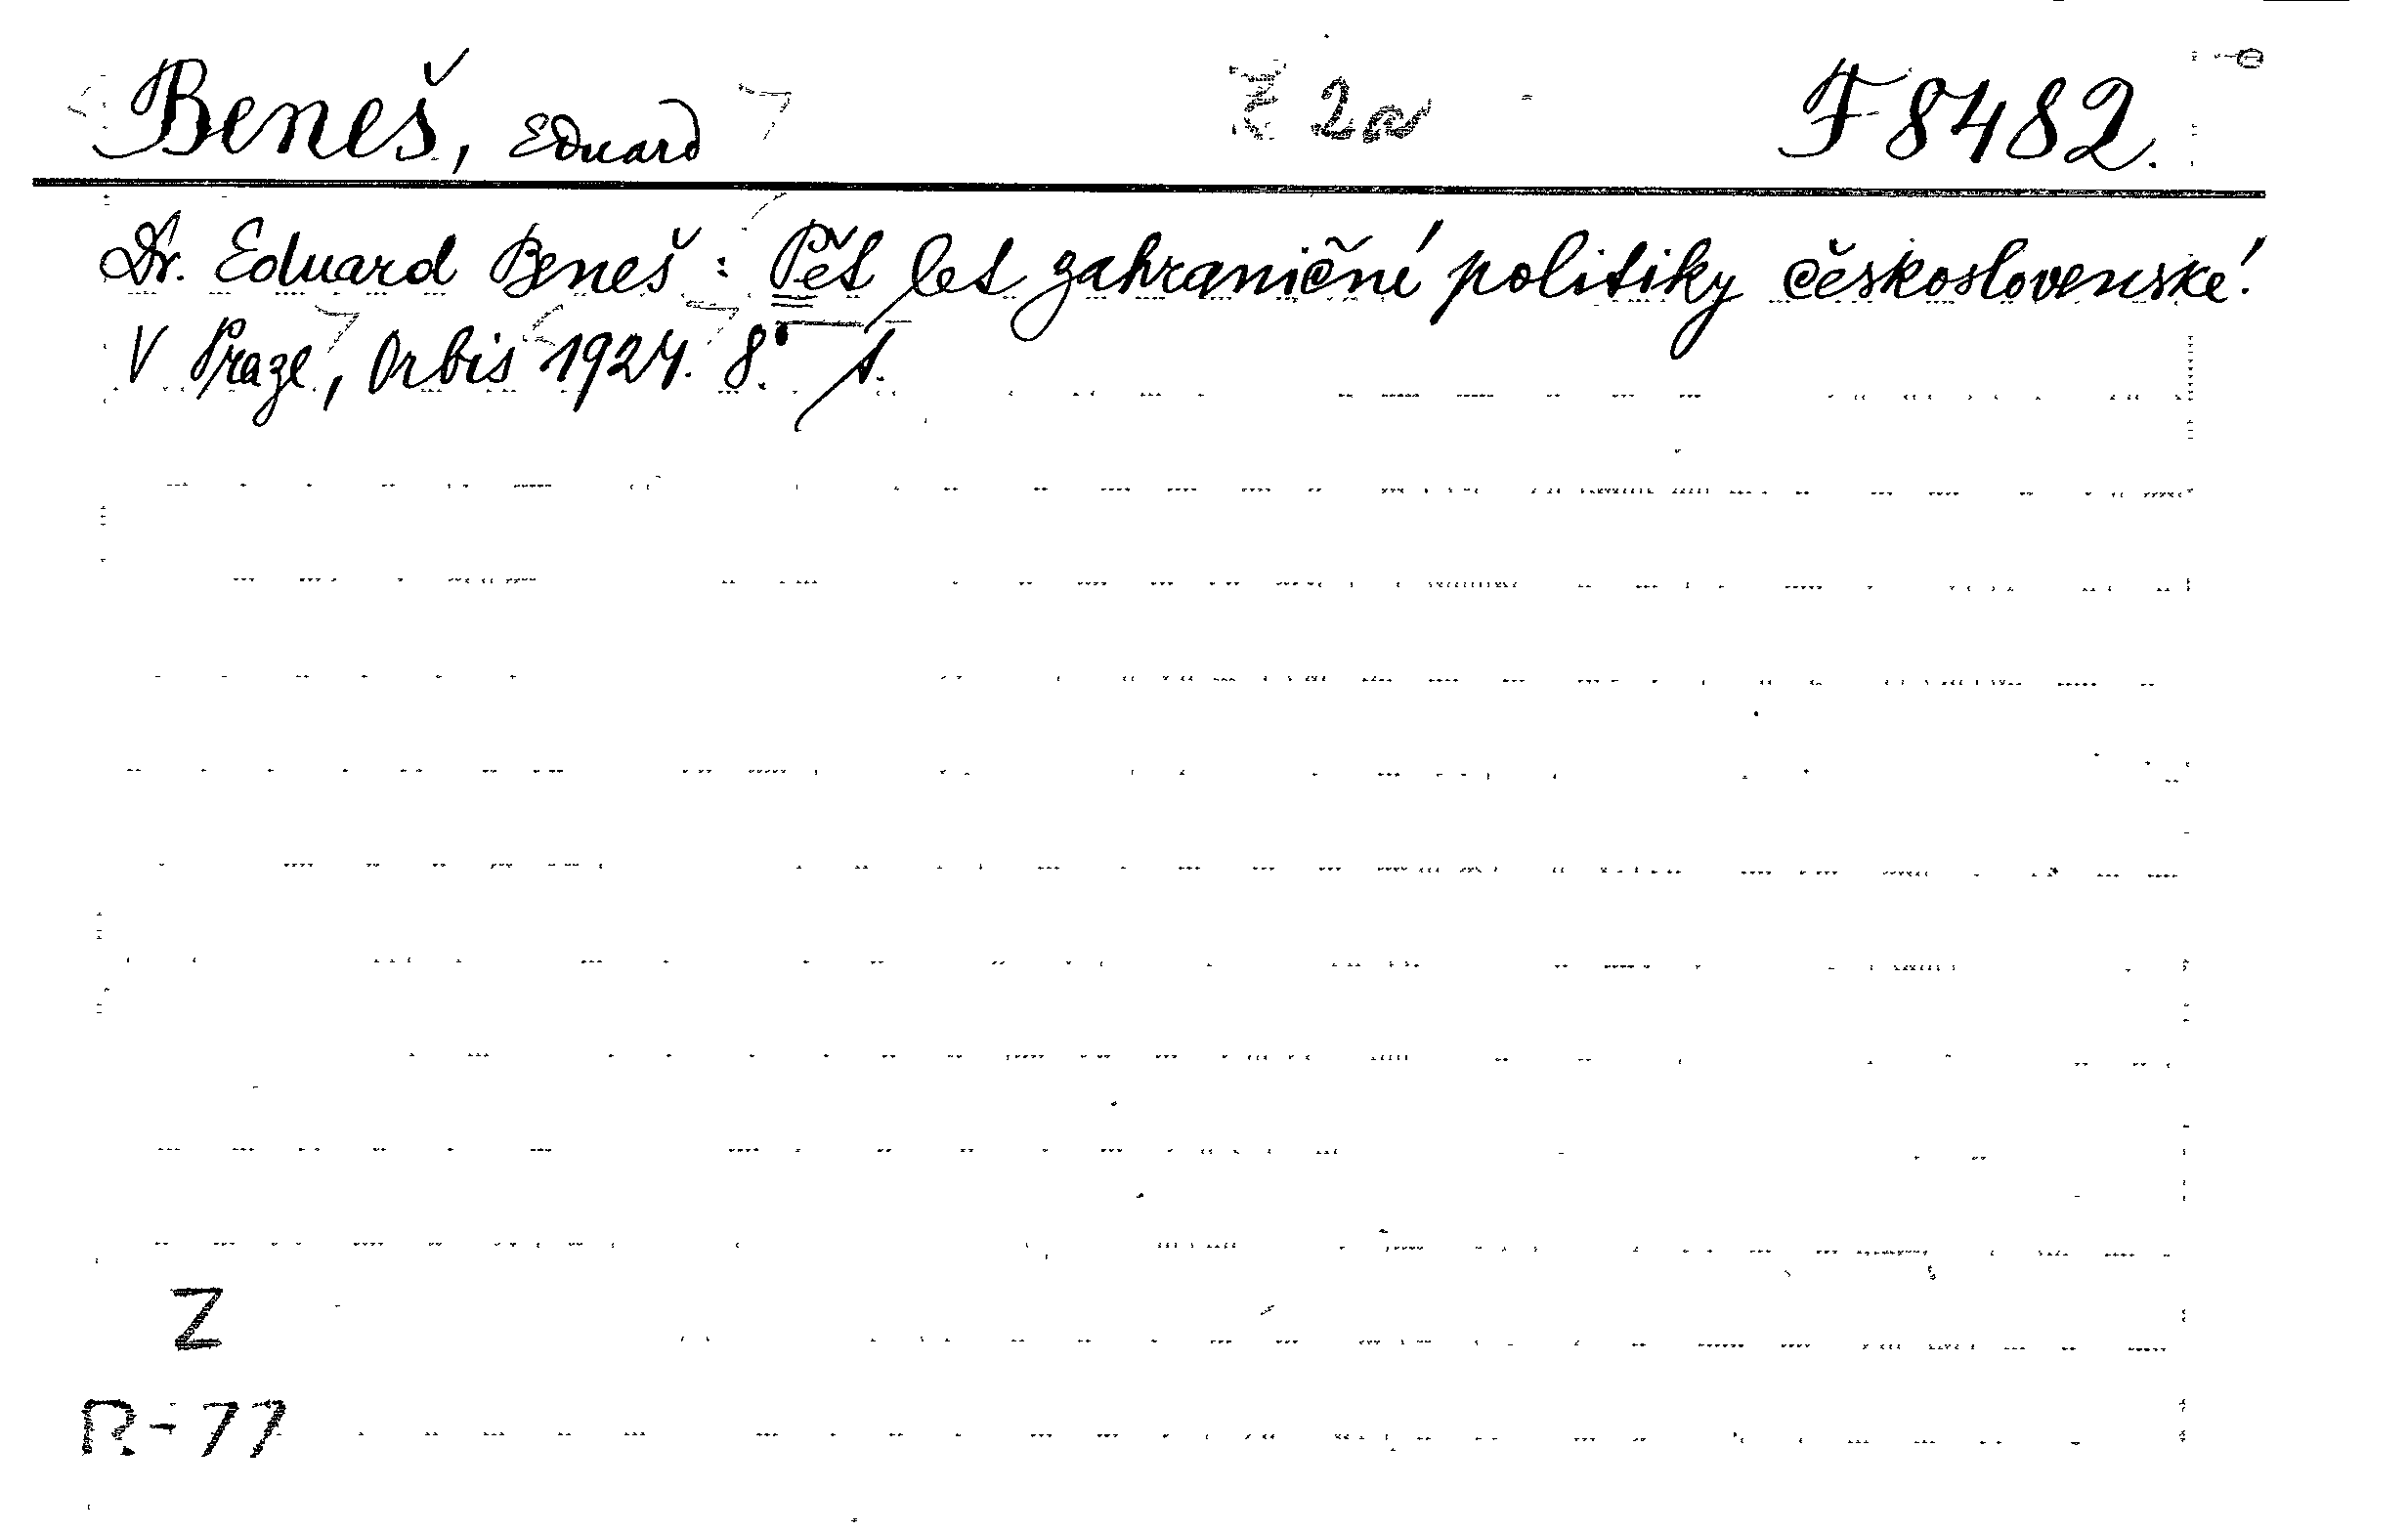 Beneš, Eduard Z 2a F 8482.
Dr. Eduard Beneš: Pět let zahraničné politiky československé.
V Praze, Orbis 1924. 8° s.
Z
R-77